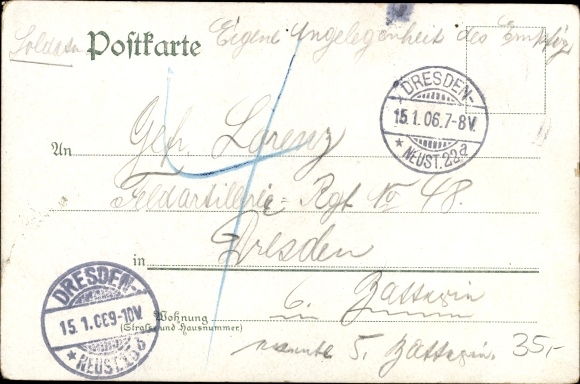 Soldaten Postkarte Eigene Angelegenheit des Empfäg
DRESDEN-
15.1.06.7-8V.
* NEUST.22a
An Gefr Lorenz
Feldartillerie-Rgt No 48.
in Dresden
6. Batterie
DRESDEN-
15.1.06 9-10V.
* NEUST.
Wohnung
(Strasse und Hausnummer)
5. Batterie. 35,-